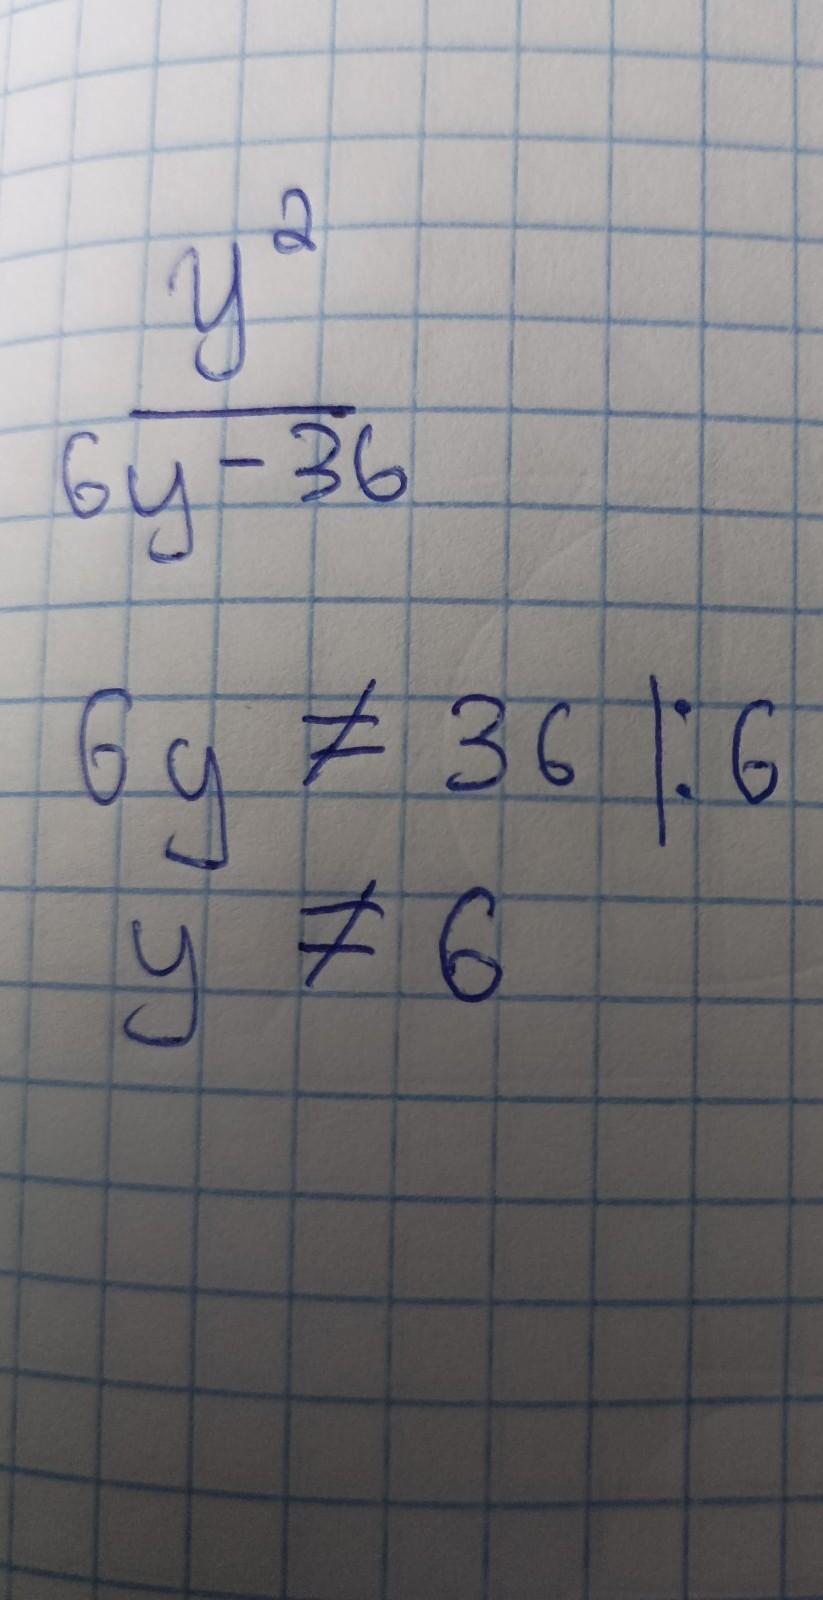 y²
6y - 36
6y ≠ 36 |:6
y ≠ 6